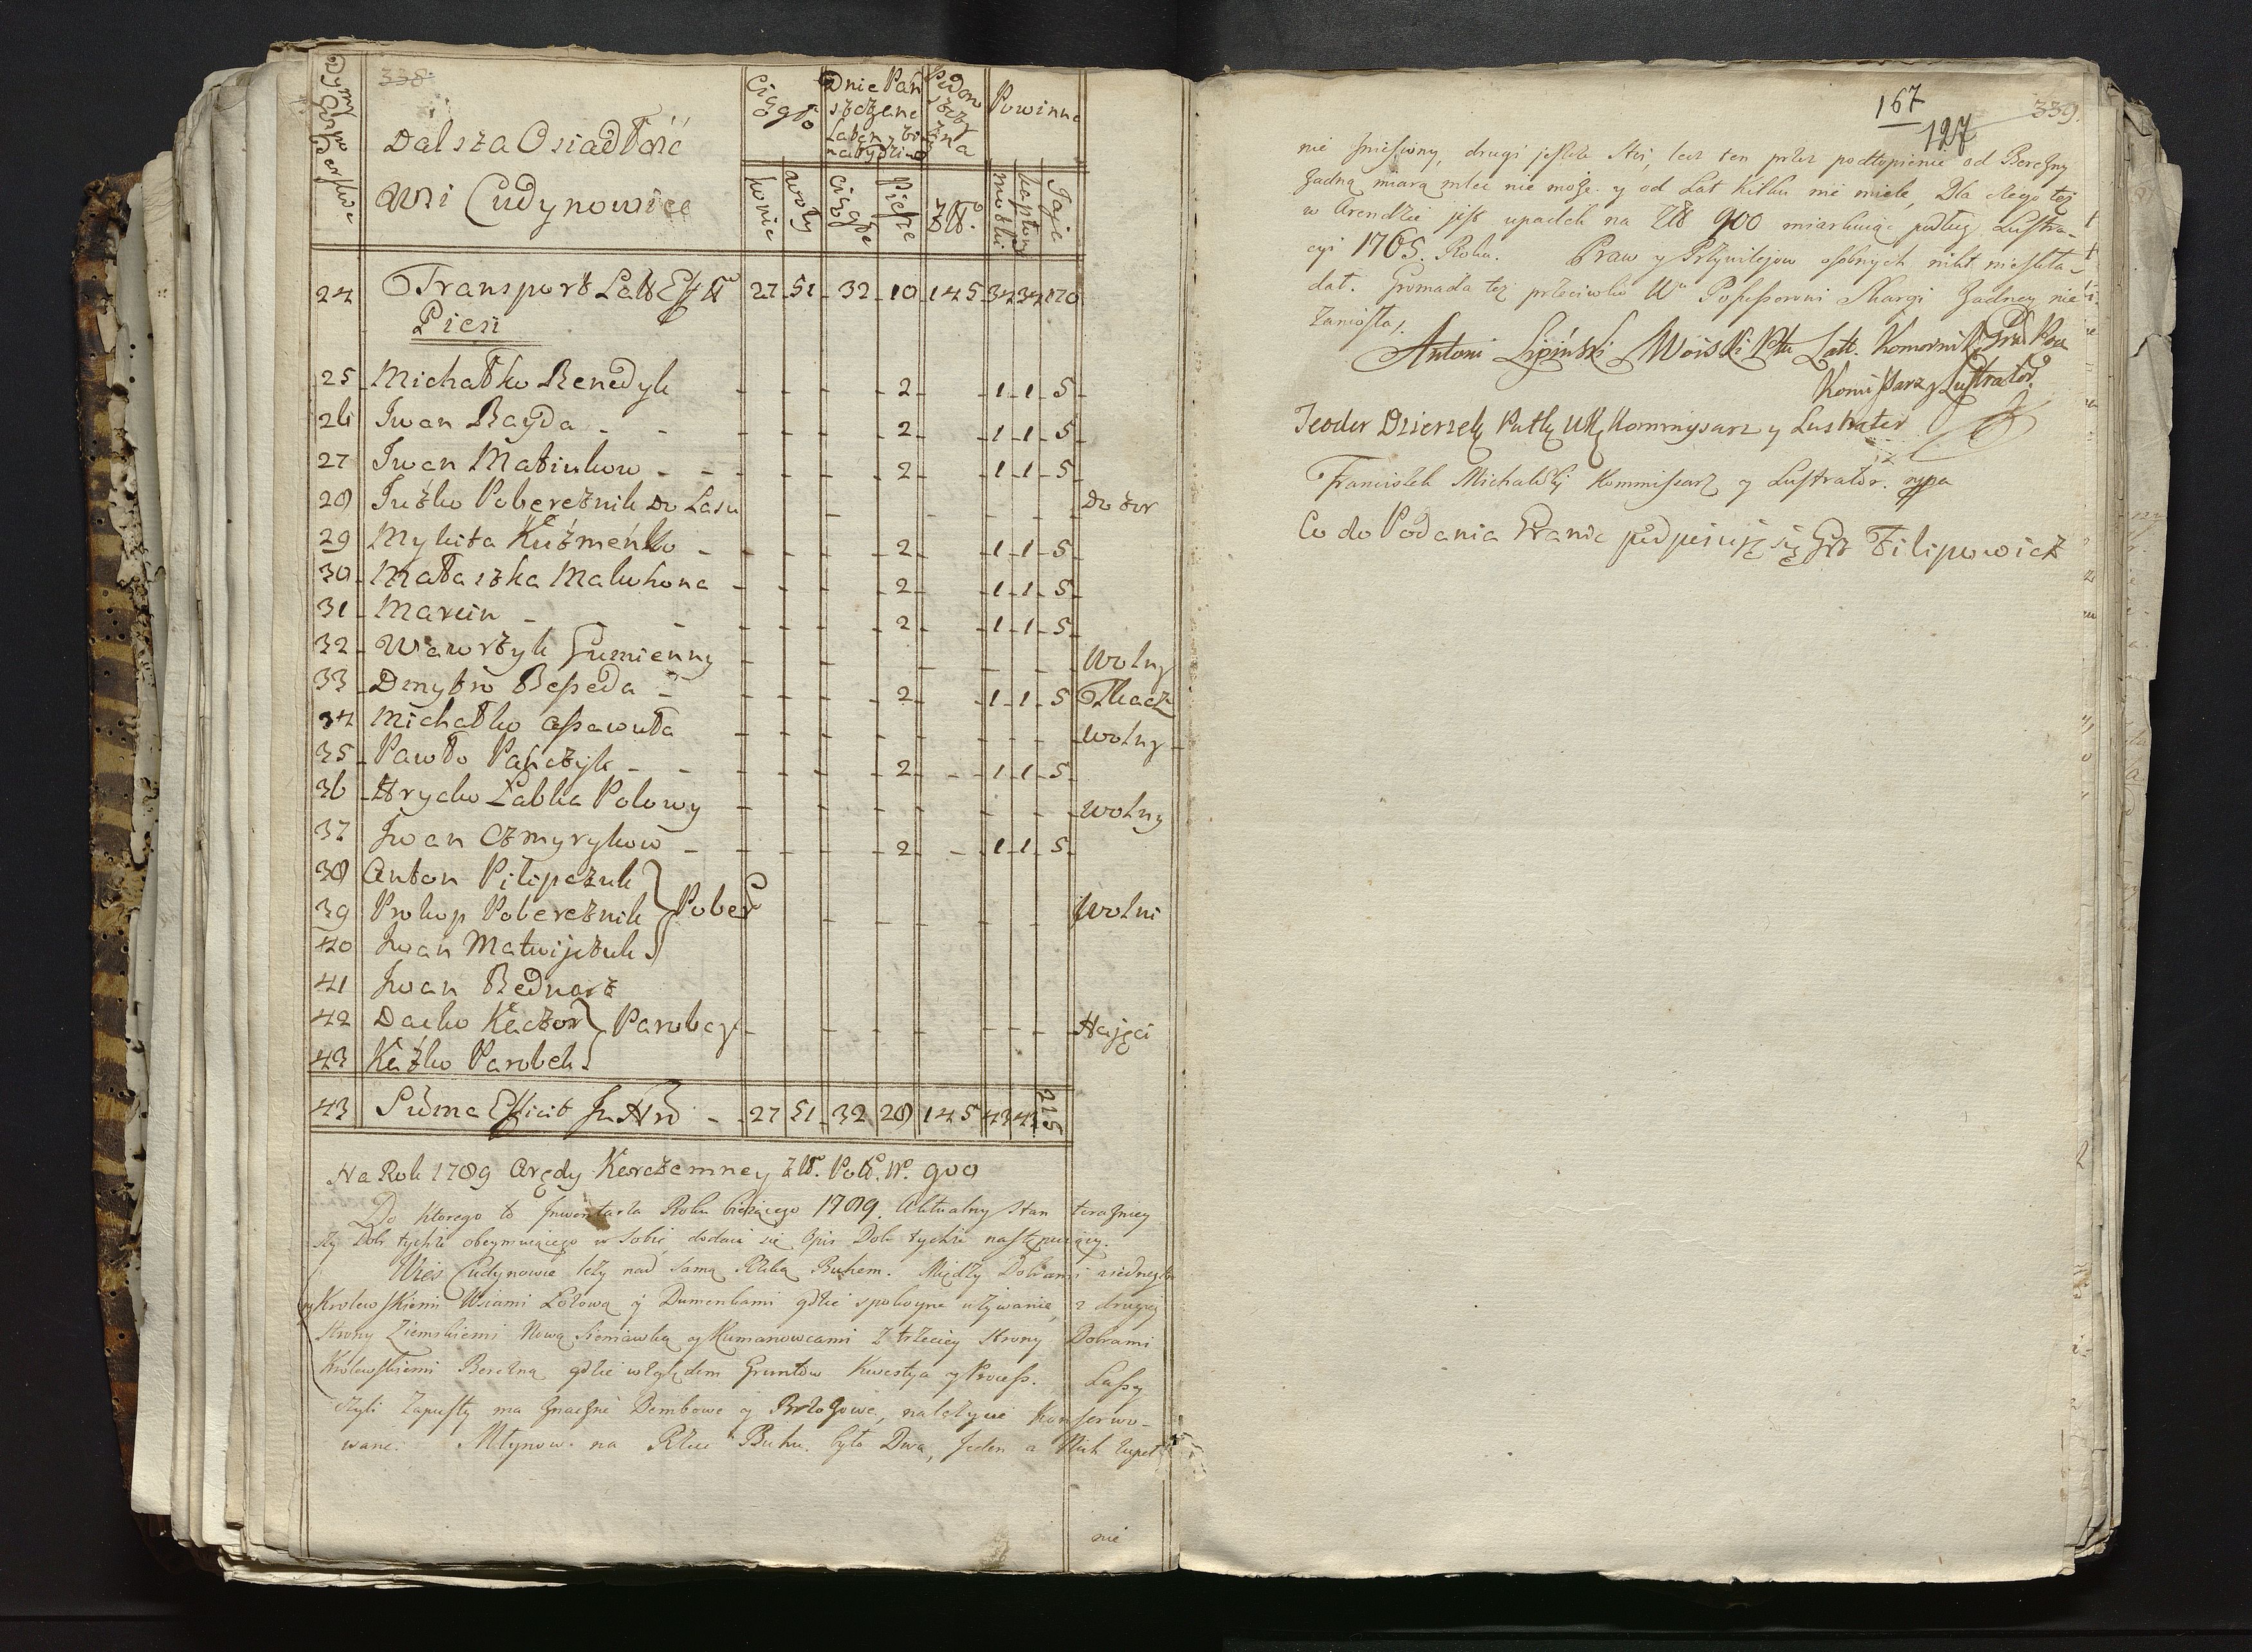 338
Dalsza Osiadłość
Wsi Cudynowiec
Dymy Gospodarskie
Ciągło
Dnie Pań
szczane
na tydzień
Powinno
konie
woły
Ciągłe
Piesze
Złł.
motki
kapłony
Jaje
24 Transport Latt Eff 27 51 32 10 145 34 34 170
Piesi
25 Michałko Benedyk - - - 2 - 1 1 5
26 Iwan Bayda - - - 2 - 1 1 5
27 Iwan Matiukow - - - 2 - 1 1 5
28 Iuźko Pobereznik Do Lasu Dozor
29 Mykita Kuźmeńko - 2 - 1 1 5
30 Mataszka Malukona - 2 - 1 1 5
31 Marcin - - 2 - 1 1 5
32 Wawrzyk Gumienny Wolny
33 Dmytro Besseda - 2 - 1 1 5 Tkacz
34 Michałko Assawuła Wolny
35 Pawło Pańczyk - - 2 - 1 1 5
36 Hrycko Labka Polowy Wolny
37 Iwan Czmyrykow - 2 - 1 1 5
38 Anton Pilipczuk
39 Prokop Pobereznik Pober Wolni
40 Iwan Matwijczuk
41 Iwan Bednarz
42 Dacko Kaczor Parobcy Najęci
43 Kaźko Parobek
43 Suma Efficit 27 51 32 28 145 43 43 215
Na Rok 1789 Arędy Karczemney Złł. Pol. No. 900
Do ktorego to Inwentarza Roku bieżącego 1789. Aktualny stan teraźniey
szy Dobr tychże obeymuiącego w sobie, dodaie się Opis Dobr tychże następuiący.
Wieś Cudynowce leży nad samą Rzeką Buhem. Między Dobrami z iedney
Krolewskiemi Wsiami Lozową y Dumenkami gdzie spokoyne używanie, z drugiey
strony Ziemskiemi Nową Sieniawką y Kumanowcami z trzeciey strony Dobrami
Krolewskiemi Berezną gdzie względem Gruntow Kwestya y Process. Lassy
czyli Zapusty ma znaczne Dembowe y Brzozowe, należycie konserwo-
wane. Młynow na Rzece Buhu było Dwa, Jeden z Nich zupeł
nie
167
127
339.
nie zniesiony, drugi jeszcze stoi, lecz ten przez podtopienie od Berezny
żadną miarą mleć nie może y od Lat kilku nie miele, Dla tego też
w Arendzie jest upadek na Złł 900 miarkuiąc podług Lustra-
cyi 1765. Roku. Praw y Przywilejow osobnych nikt nieskła-
dał. Gromada też przeciwko Wu Possessorowi Skargi żadney nie
zaniosła.
Antoni Lipiński Woiski Ptu Latt. Komornik
Komissarz y Lustrator
Teodor Dzierzek Kommysarz y Lustrator
Franciszek Michalski Kommissarz y Lustrator. mpa
Co do Podania Granic podpisuję się Filipowicz